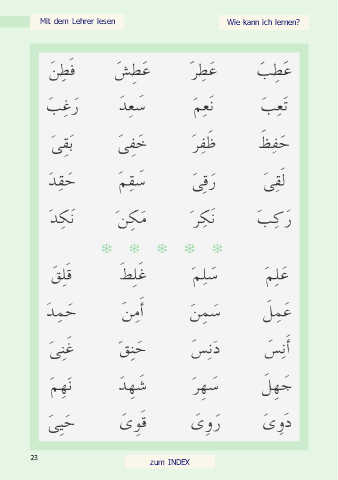 Mit dem Lehrer lesen Wie kann ich lernen?
عَطِبَ عَطِرَ عَطِشَ فَطِنَ
تَعِبَ نَعِمَ سَعِدَ رَغِبَ
حَفِظَ ظَفِرَ خَفِىَ بَقِىَ
لَقِىَ رَقِىَ سَقِمَ حَقِدَ
رَكِبَ نَكِرَ مَكِنَ نَكِدَ
عَلِمَ سَلِمَ غَلِطَ قَلِقَ
عَمِلَ سَمِنَ أَمِنَ حَمِدَ
أَنِسَ دَنِسَ حَنِقَ غَنِىَ
جَهِلَ سَهِرَ شَهِدَ نَهِمَ
دَوِىَ رَوِىَ قَوِىَ حَيِىَ
23
zum INDEX